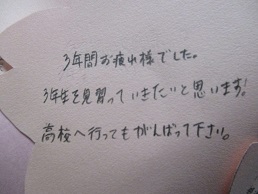 3年間お疲れ様でした。
3年生を見習っていきたいと思います!
高校へ行ってもがんばって下さい。